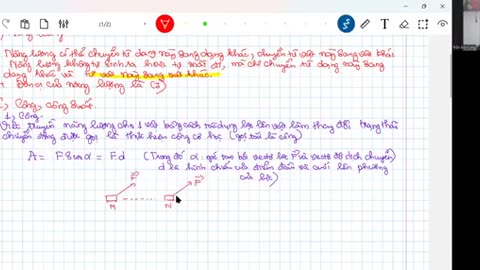 (1/2)
Năng lượng có thể chuyển từ dạng này sang dạng khác, chuyển từ vật này sang vật khác
Năng lượng không tự sinh ra hoặc tự mất đi, mà chỉ chuyển từ dạng này sang
dạng khác và từ vật này sang vật khác.
+ Đơn vị của năng lượng là (J)
Công, công suất.
1, Công.
Việc truyền năng lượng cho 1 vật bằng cách tác dụng lực lên vật làm thay đổi trạng thái
chuyển động được gọi là thực hiện công cơ học (gọi tắt là công)
A = F.s.cosα = F.d (Trong đó α góc tạo bởi vectơ lực F⃗ và vectơ độ dịch chuyển)
d là hình chiếu của điểm đầu và cuối lên phương
của lực)
F⃗ F⃗
M N